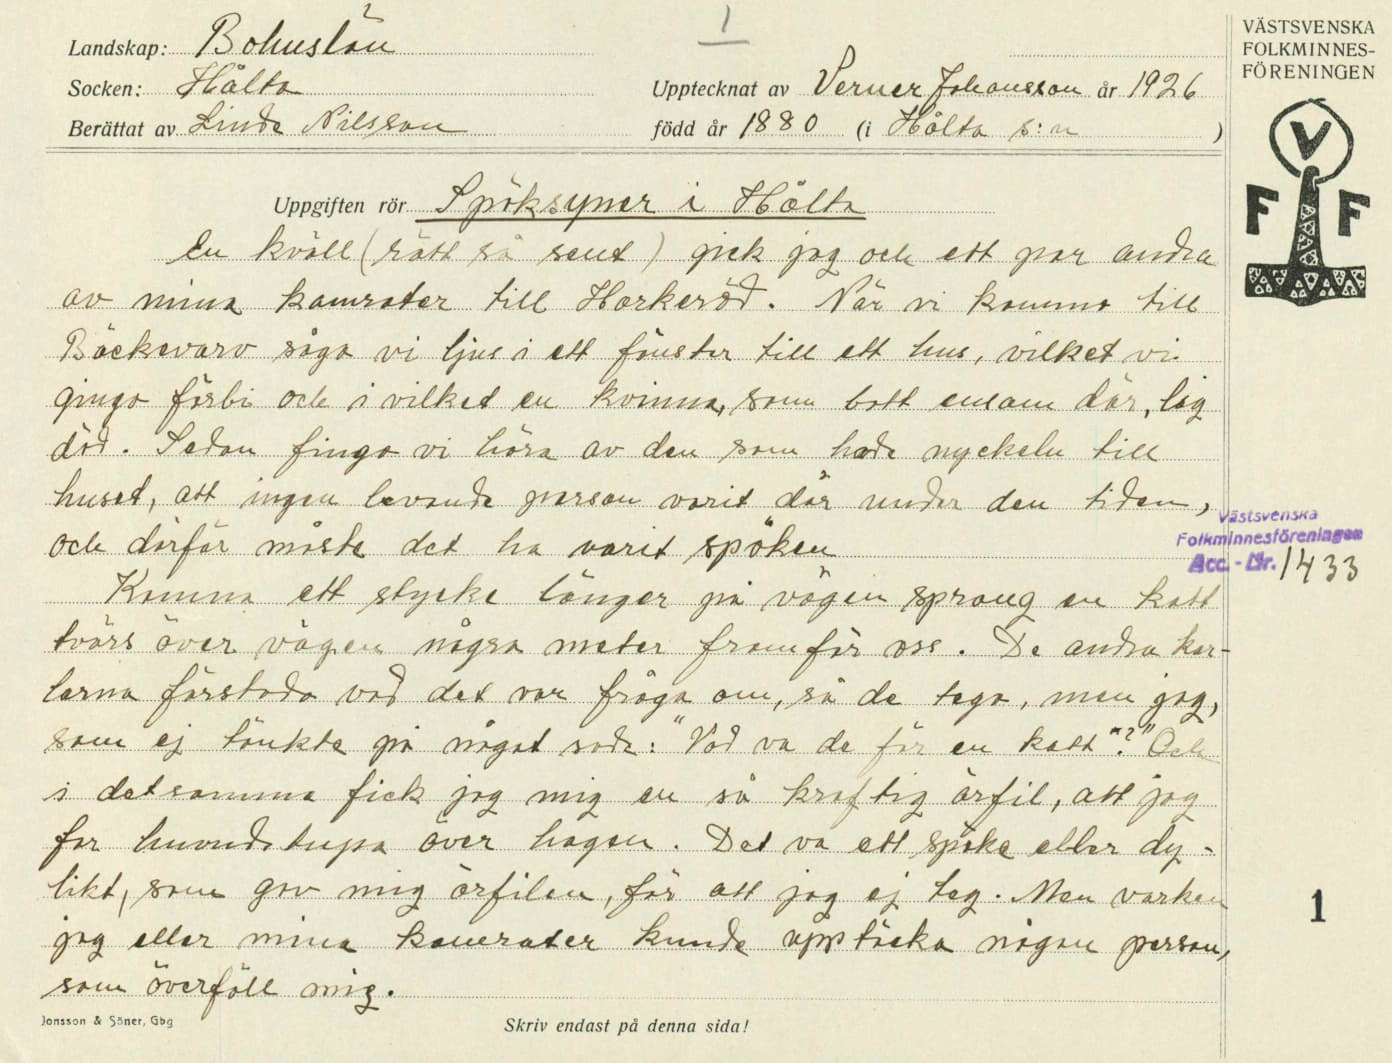 1
Landskap: Bohuslän
Socken: Hålta
Upptecknat av Verner Johansson år 1926
Berättat av Linde Nilsson
född år 1880 (i Hålta s:n )
VÄSTSVENSKA
FOLKMINNES-
FÖRENINGEN
V
F F
Uppgiften rör Spöksyner i Hålta
En kväll (rätt så sent) gick jag och ett par andra
av mina kamrater till Harkeröd. När vi kommo till
Bäckevarv sågo vi ljus i ett fönster till ett hus, vilket vi
gingo förbi och i vilket en kvinna, som bott ensam där, låg
död. Sedan fingo vi höra av den som hade nyckeln till
huset, att ingen levande person varit där under den tiden,
och därför måste det ha varit spöken
Komna ett stycke länger på vägen sprang en katt
tvärs över vägen några meter framför oss. De andra kar-
larna förstodo vad det var fråga om, så de tego, men jag,
som ej tänkte på något sade: "Vad va de för en katt"?" Och
i detsamma fick jag mig en så kraftig örfil, att jag
for huvudstupa över hagen. Det va ett spöke eller dy-
likt, som gav mig örfilen, för att jag ej teg. Men varken
jag eller mina kamrater kunde upptäcka någon person,
som överföll mig.
Västsvenska
Folkminnesföreningen
Acc. - Nr. 1433
1
Jonsson & Söner, Gbg
Skriv endast på denna sida!